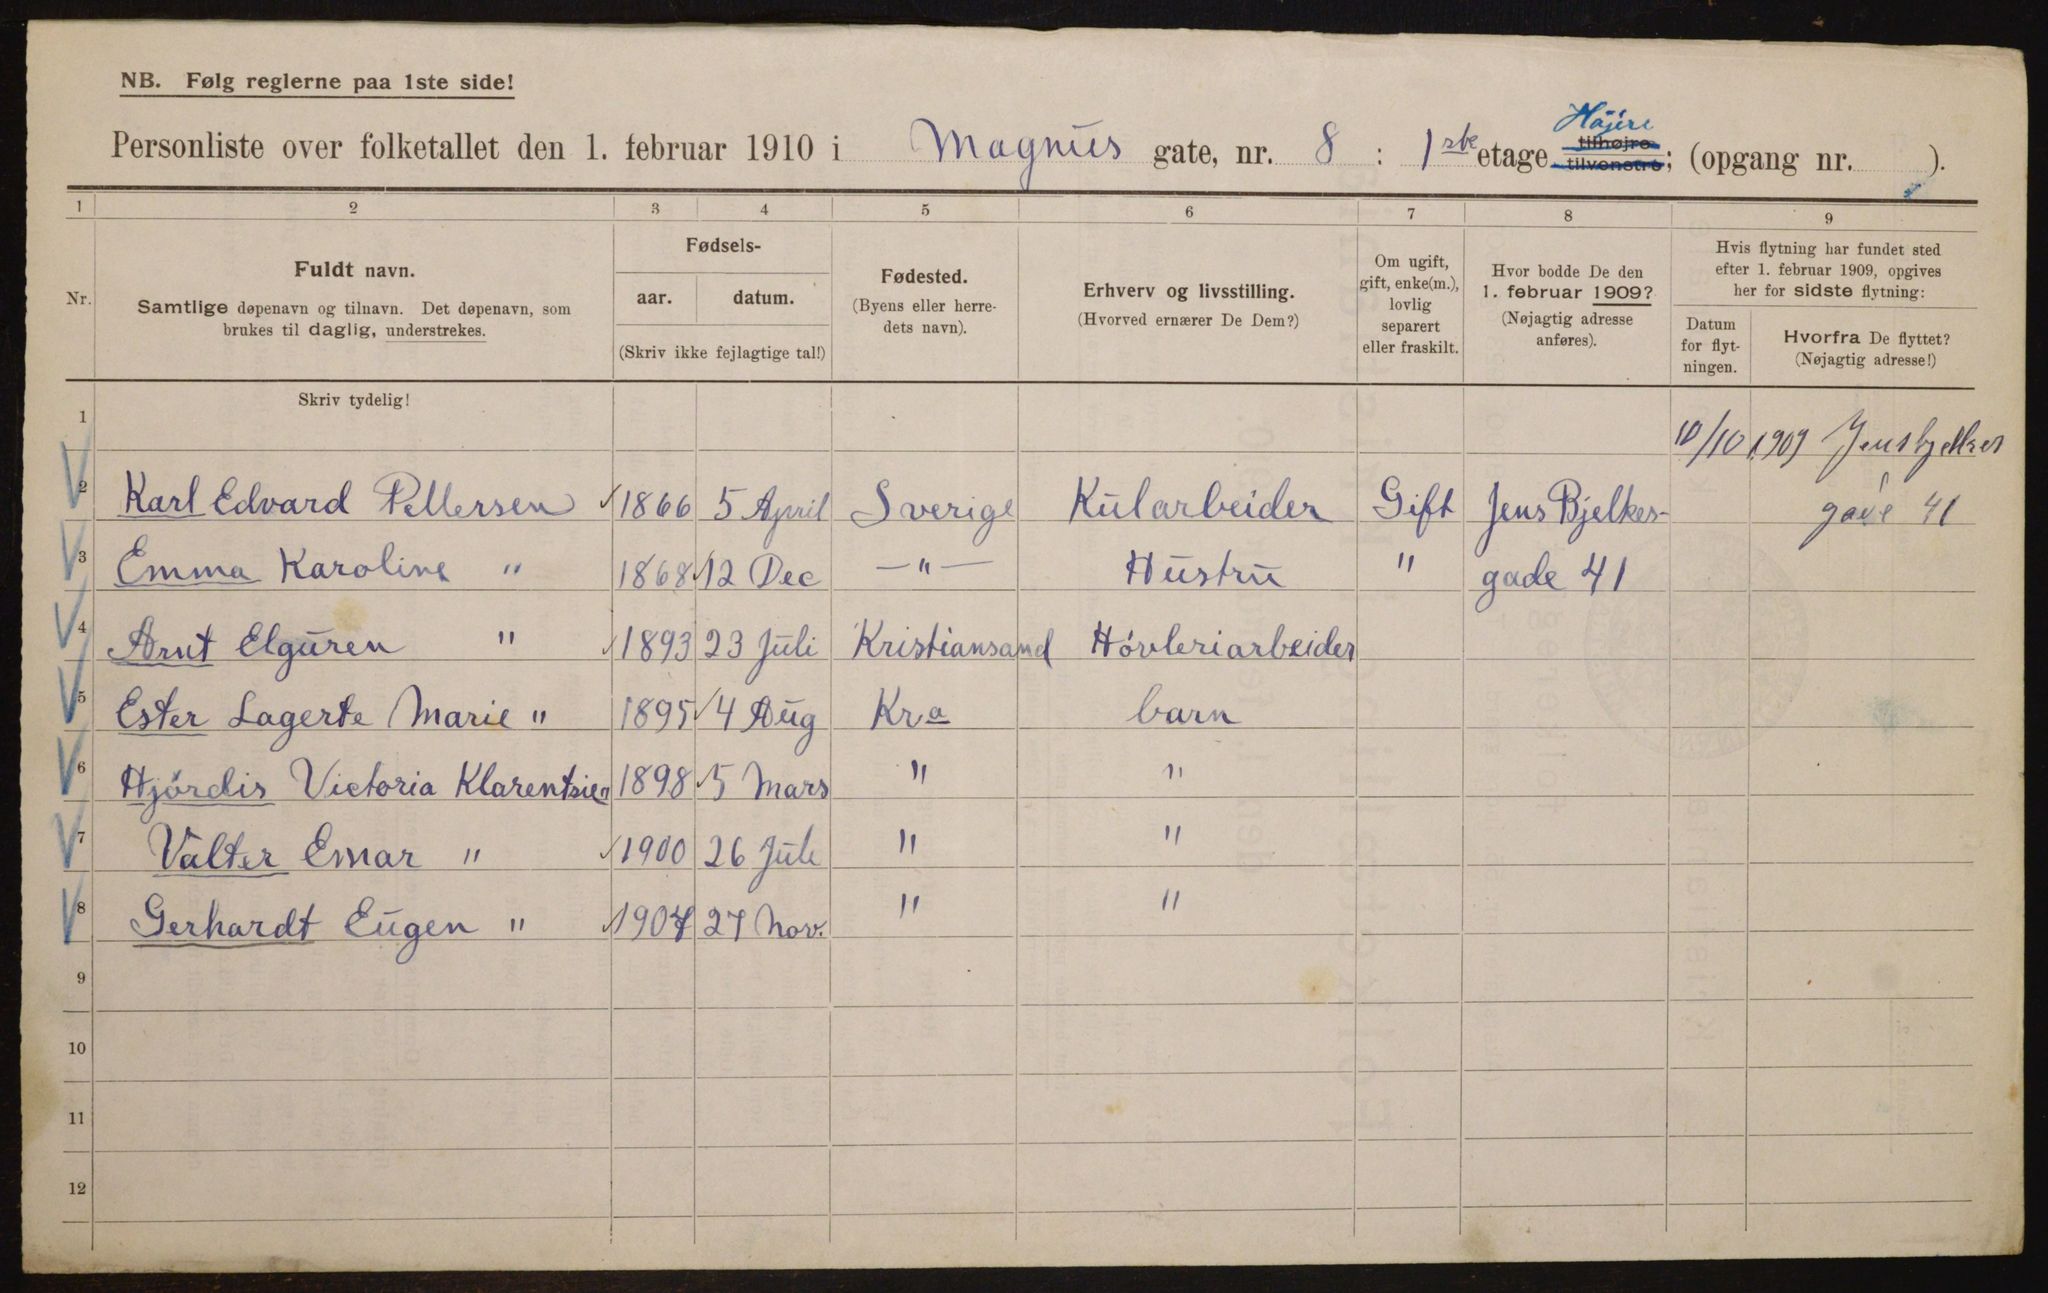 NB. Følg reglerne paa 1ste side!
Personliste over folketallet den 1. februar 1910 i Magnus gate, nr. 8 : 1ste etage Højere tilhøjre tilvenstre; (opgang nr. ).
1 2 3 4 5 6 7 8 9
Nr.
Fuldt navn.
Samtlige døpenavn og tilnavn. Det døpenavn, som
brukes til daglig, understrekes.
Fødsels-
aar. datum.
(Skriv ikke fejlagtige tal!)
Fødested.
(Byens eller herre-
dets navn).
Erhverv og livsstilling.
(Hvorved ernærer De Dem?)
Om ugift,
gift, enke(m.),
lovlig
separert
eller fraskilt.
Hvor bodde De den
1. februar 1909?
(Nøjagtig adresse
anføres).
Hvis flytning har fundet sted
efter 1. februar 1909, opgives
her for sidste flytning:
Datum
for flyt-
ningen.
Hvorfra De flyttet?
(Nøjagtig adresse!)
Skriv tydelig!
1 10/10 1909
2 Karl Edvard Pettersen 1866 5 April Sverige Kularbeider Gift Jens Bjelkes- 41
3 Emma Karoline " 1868 12 Dec —"— Hustru " gade 41
4 Arnt Elguren " 1893 23 Juli Kristiansand Høvleriarbeider
5 Ester Lagerte Marie " 1895 4 Aug Kra barn
6 Hjördis Victoria Klarentsie " 1898 5 Mars " "
7 Valter Emar " 1900 26 Juli " "
8 Gerhardt Eugen " 1907 27 Nov. " "
9
10
11
12